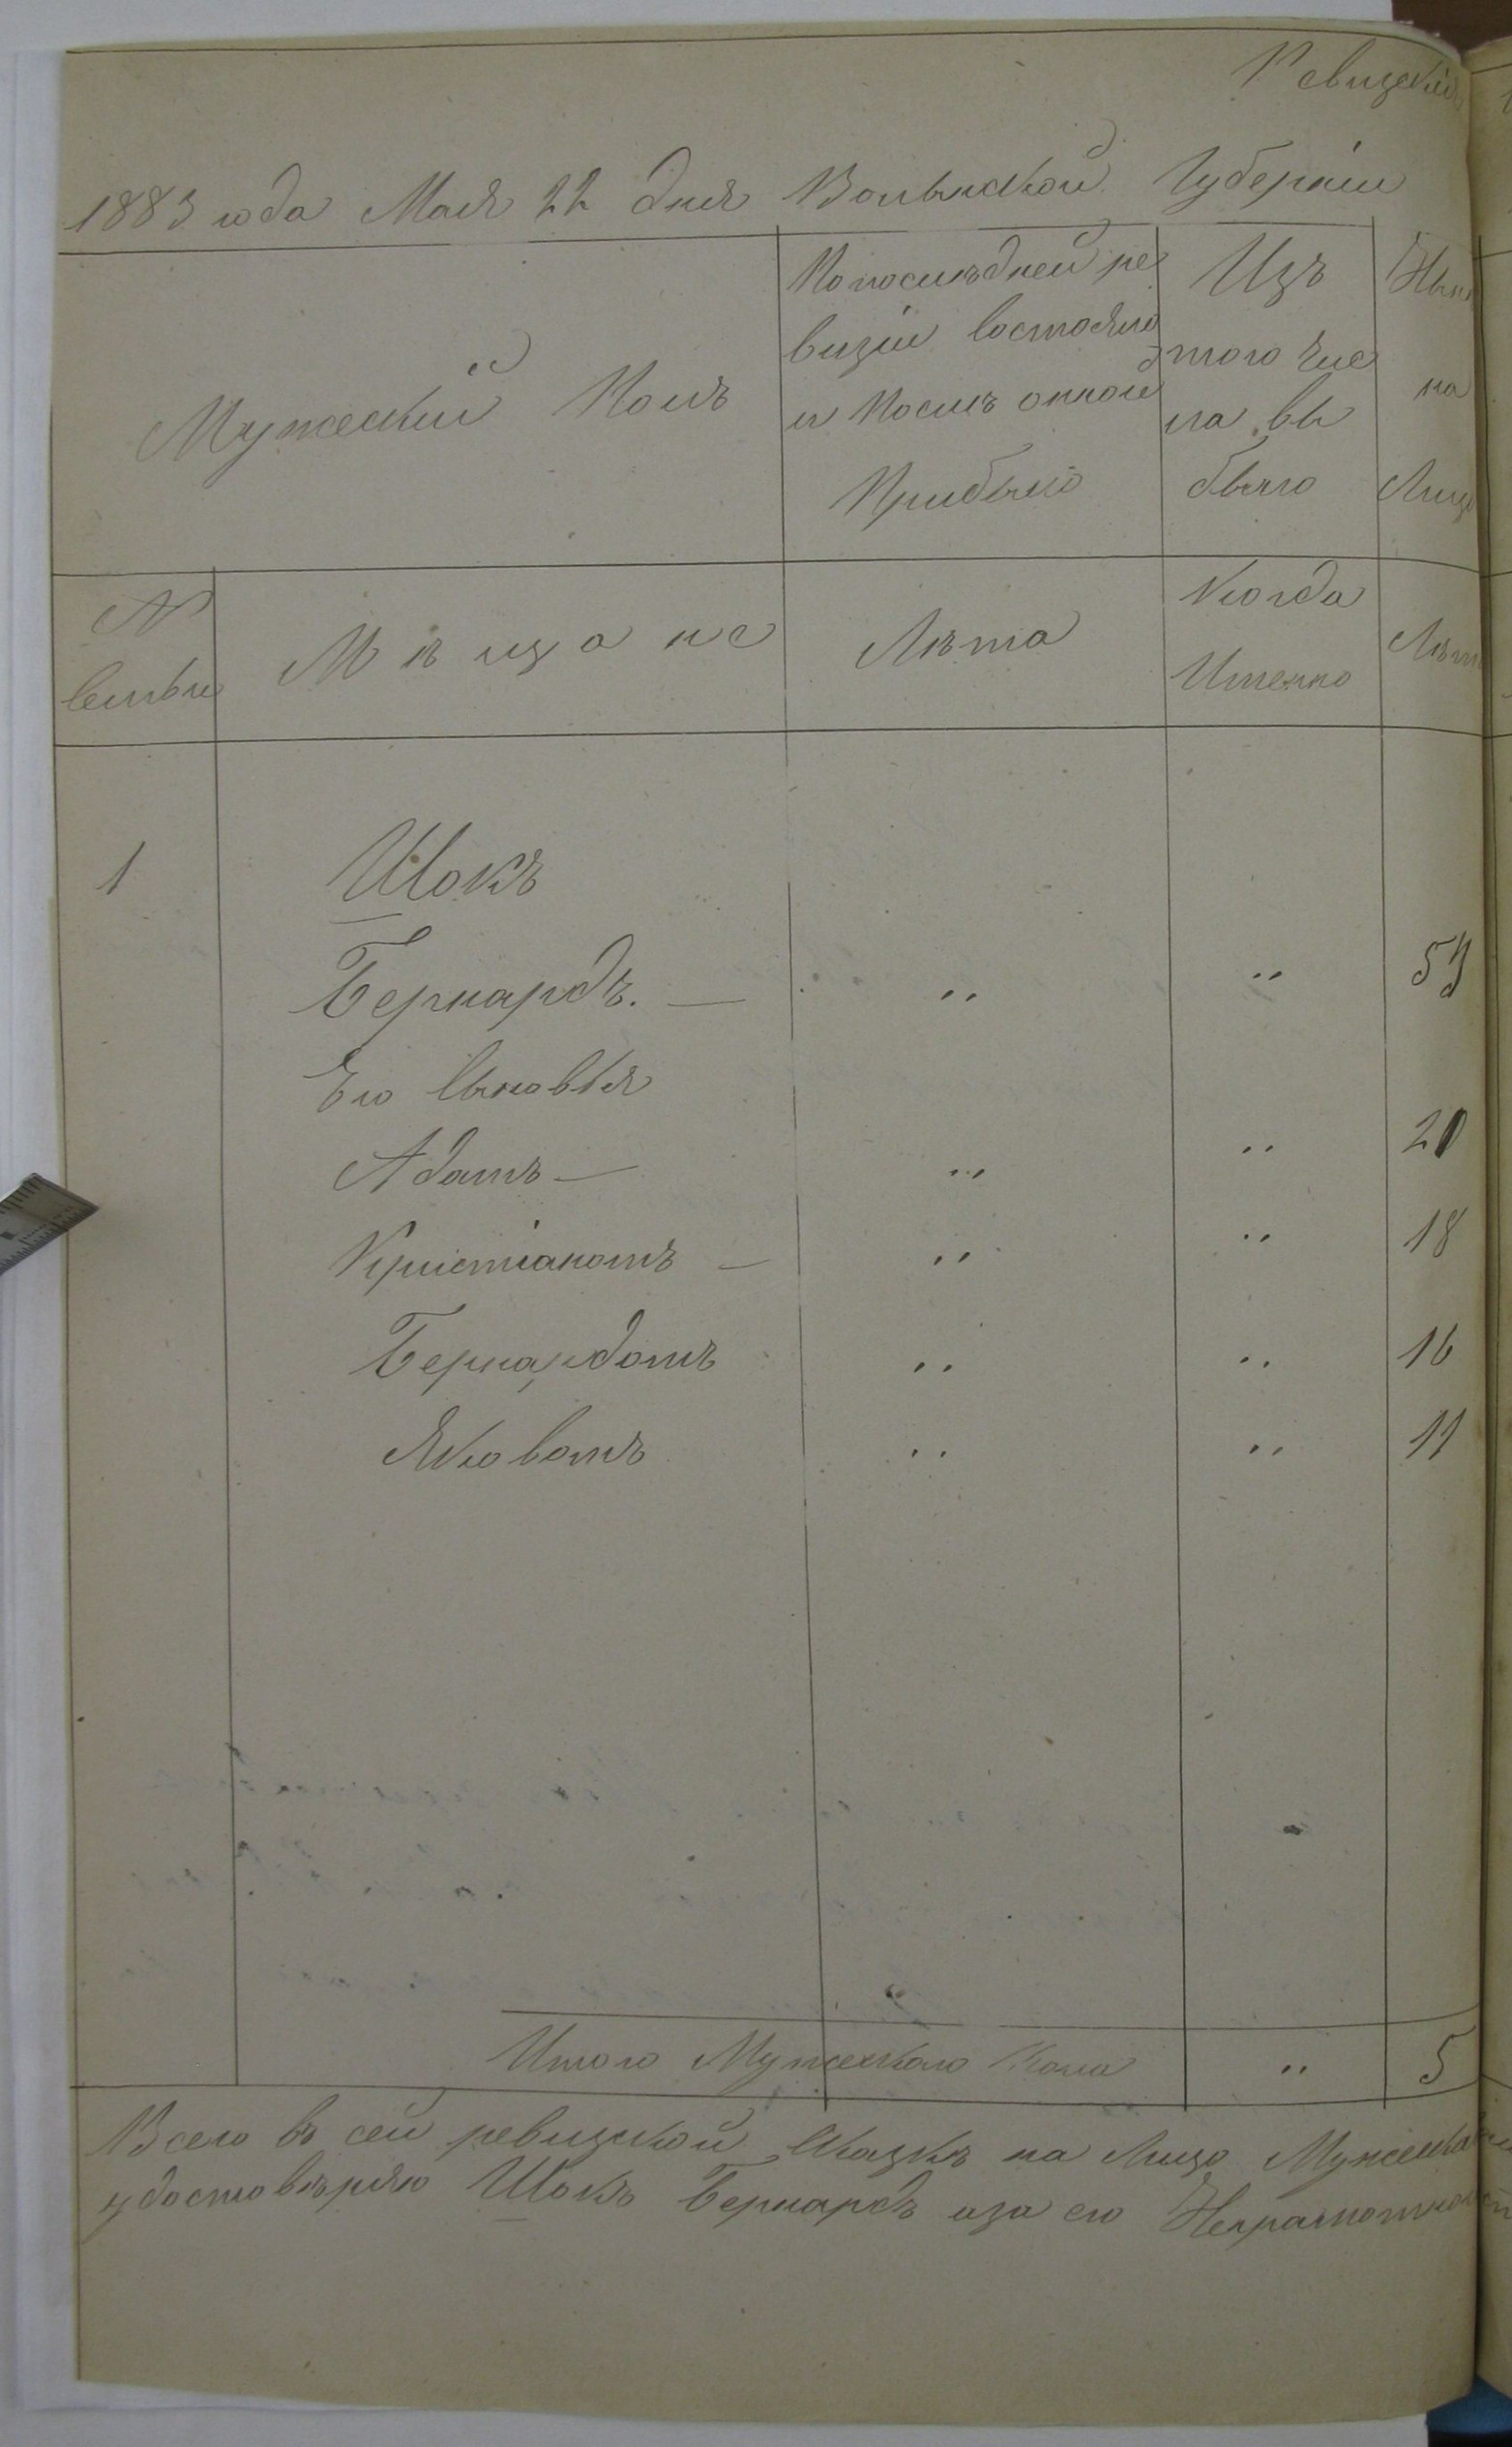 Ревизская
1883 года Мая 22 дня Волынской Губернии
Мужеский Полъ
По последней ре
визии состояло
и После оной
Прибыло
Изъ
того чис
ла вы
было
на
Лицо
№
семьи
Мещане
Лета
Когда
Именно
1
Шокъ
Бернардъ. — " "
Его сыновья
Адамъ — " " 20
Кристианомъ — " " 18
Бернардомъ " " 16
Яковомъ " " 11
Итого Мужескаго Пола " 5
Всего въ сей ревизской сказкѣ на лицо Мужеска
удостовѣряю Шокъ Бернардъ аза его Неграмотно